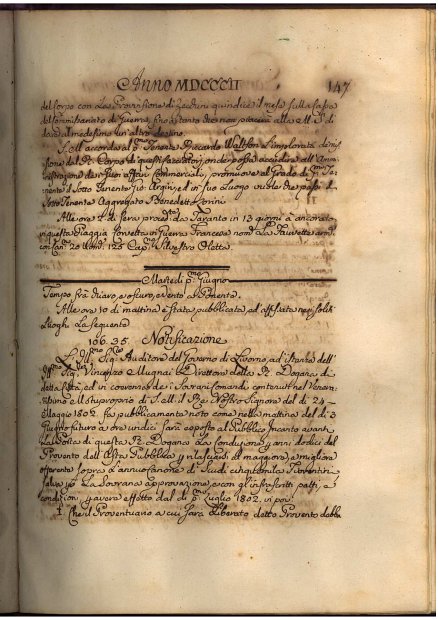 Anno MDCCCII 147
del Corpo con La Provvisione di Zecchini quindici il mese sulla Cassa
del Commissariato di Guerra, fino a tanto che non piacerà alla M. S. di
dare al medesimo un'altro destino.
S. M. accorda al Tenente Riccardo Walthon L'implorata dimis-
sione dal Corpo di questi Cacciatori, onde possa accudire all'Ammi-
nistrazione de' suoi affari Commerciali, promuove al Grado di Te-
nente il Sotto Tenente ed in suo Luogo vuole che passi il
Sotto Tenente Aggregato Benedetto
Alle ore di sera proced. da Taranto in 13 giorni à ancorato
in questa Spiaggia Corvetta di Guerra Francese nom. La Fauvette arm.
con Can. 20 Uom. 125 Cap. Silvestro Oletta.
Martedì p.mo Giugno
Tempo frà chiaro, e oscuro, e vento a Ponente.
Alle ore 10 di mattina è stata pubblicata, ed affissata ne' soliti
Luoghi La seguente
106.35. Notificazione
L'Ill.mo Sig. Auditore del Governo di Livorno, ad istanza dell'
Sig. Vincenzo Mugnai Direttore della R. Dogana di
detta Città, ed in coerenza de' Sovrani comandi contenuti nel Veneran-
bimo Motuproprio di S. M. il Re Nostro Signore del dì 24
Maggio 1802. fa pubblicamente noto come nella mattina del dì 3
Giugno futuro a ore undici sarà esposto al Pubblico Incanto avanti
La Porta di questa R. Dogana La conduzione p. anni dodici del
Provento dell'Asta Pubblica p. rilasciarsi al maggiore, e migliore
offerente sopra l'annuo Canone di Scudi cinquemila Fiorentini
salva p. La Sovrana approvazione, e con gl'infrascritti patti, e
condizioni, p. avere effetto dal dì p.mo Luglio 1802. in poi.
1. Che il Proventuario a cui sarà Liberato detto Provento debba